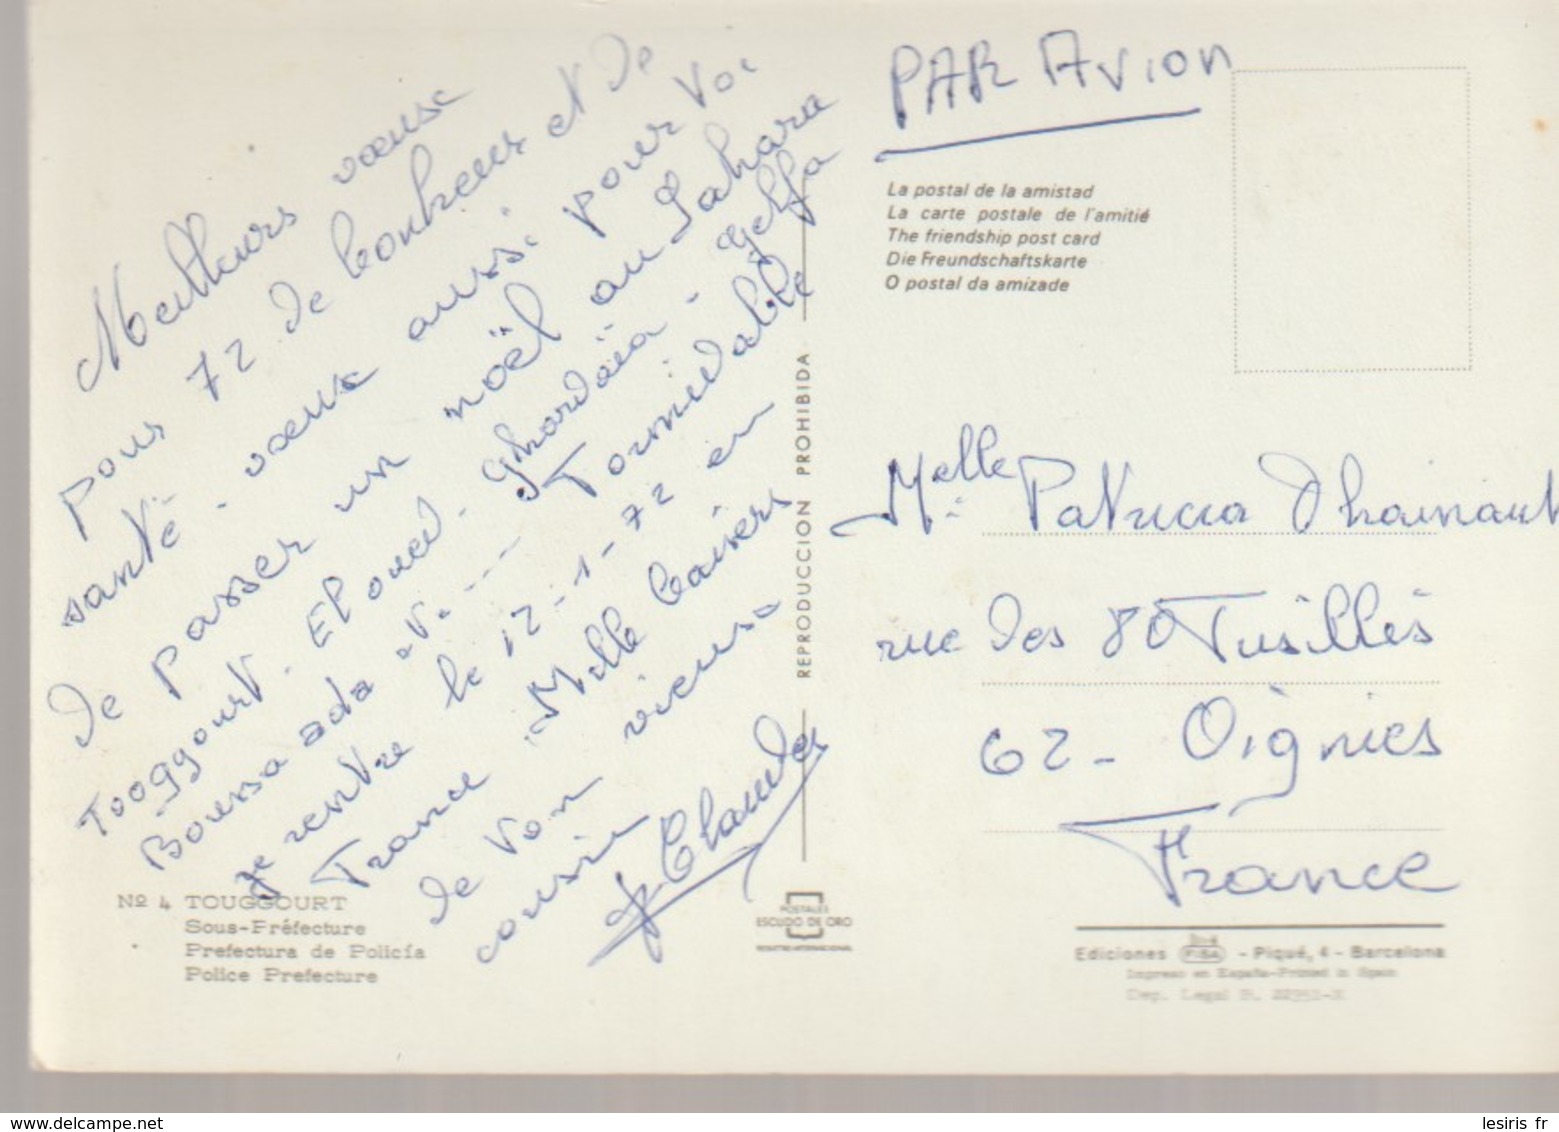 Meilleurs vœux
pour 72 de bonheur et de
santé - vœux aussi pour
de passer un noël au Sahara
Touggourt. El oued. Ghardaïa - Gelfa
Boussaada Formidable
je rentre le 12-1-72 en
France. Mille baisers
de ton vieux
cousin
J Claude
PAR AVION
La postal de la amistad
La carte postale de l'amitié
The friendship post card
Die Freundschaftskarte
O postal da amizade
REPRODUCCION PROHIBIDA
Melle Patricia Dhainaut
rue des 80 Fusillés
62 - Oignies
France
Nº 4 TOUGGOURT
Sous-Préfecture
Prefectura de Policía
Police Prefecture
POSTALES
ESCUDO DE ORO
REGISTRO INTERNACIONAL
Ediciones FISA - Piqué, 4 - Barcelona
Impreso en España-Printed in Spain
Dep. Legal B.
www.delcampe.net
lesiris fr